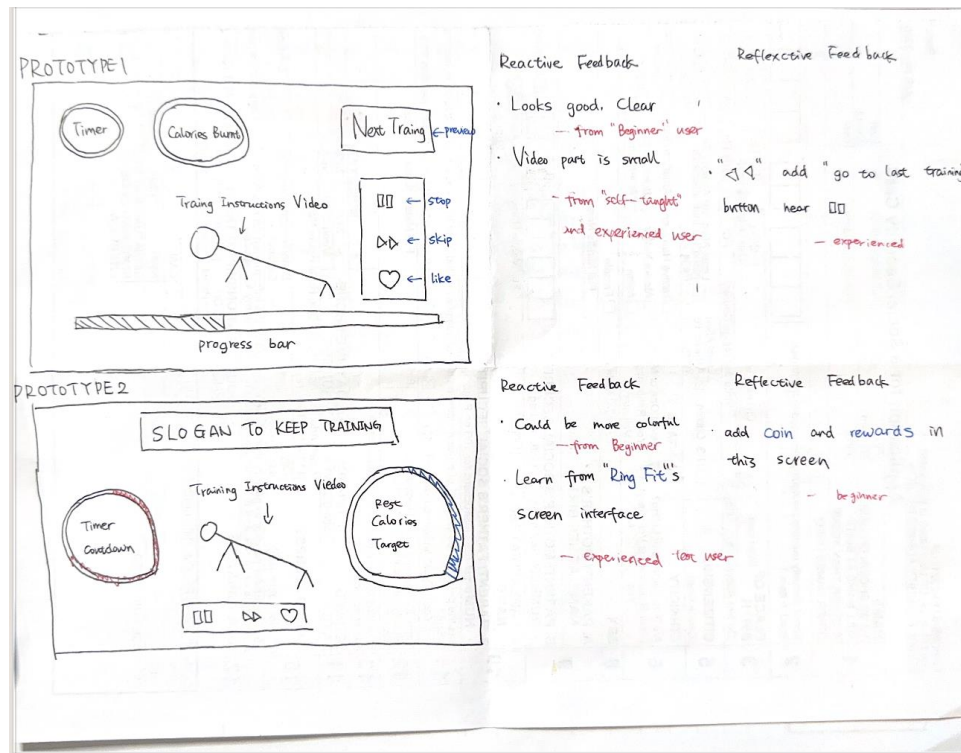 PROTOTYPE 1
Timer
Calories Burnt
Next Traing
← preview
Traing Instructions Video
← stop
← skip
← like
progress bar
Reactive Feedback
· Looks good. Clear
— from "Beginner" user
· Video part is small
— from "self-taught"
and experienced user
Reflexctive Feedback
· "◁◁" add "go to last training
button near ▯▯
— experienced
PROTOTYPE 2
SLOGAN TO KEEP TRAINING
Training Instructions Viedeo
Timer
Coutdown
Rest
Calories
Target
Reactive Feedback
· Could be more colorful
— from Beginner
· Learn from "Ring Fit"'s
screen interface
— experienced test user
Reflective Feedback
· add coin and rewards in
this screen
— beginner